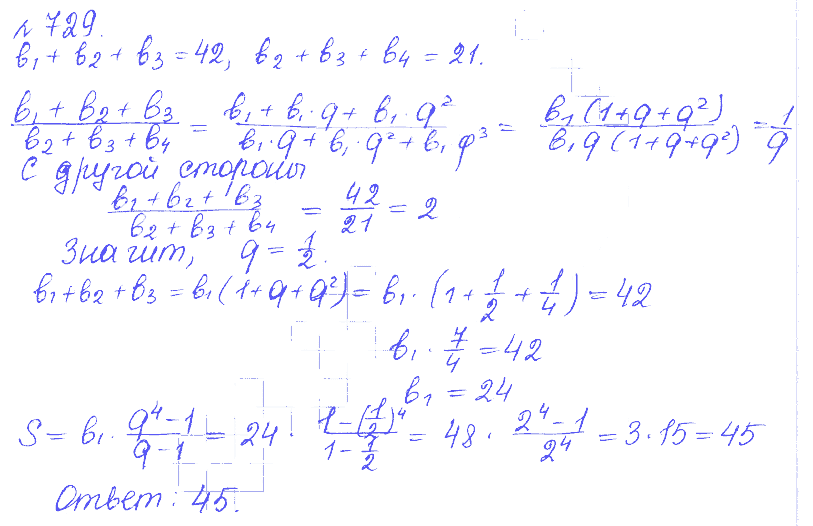 № 729.
b₁ + b₂ + b₃ = 42, b₂ + b₃ + b₄ = 21.
(b₁ + b₂ + b₃)/(b₂ + b₃ + b₄) = (b₁ + b₁·q + b₁·q²)/(b₁·q + b₁·q² + b₁q³) = (b₁(1+q+q²))/(b₁q(1+q+q²)) = 1/q
С другой стороны
(b₁ + b₂ + b₃)/(b₂ + b₃ + b₄) = 42/21 = 2
Значит, q = 1/2.
b₁+b₂+b₃ = b₁(1+q+q²) = b₁·(1 + 1/2 + 1/4) = 42
b₁ · 7/4 = 42
b₁ = 24
S = b₁ · (q⁴-1)/(q-1) = 24 · (1-(1/2)⁴)/(1-1/2) = 48 · (2⁴-1)/2⁴ = 3·15 = 45
Ответ: 45.